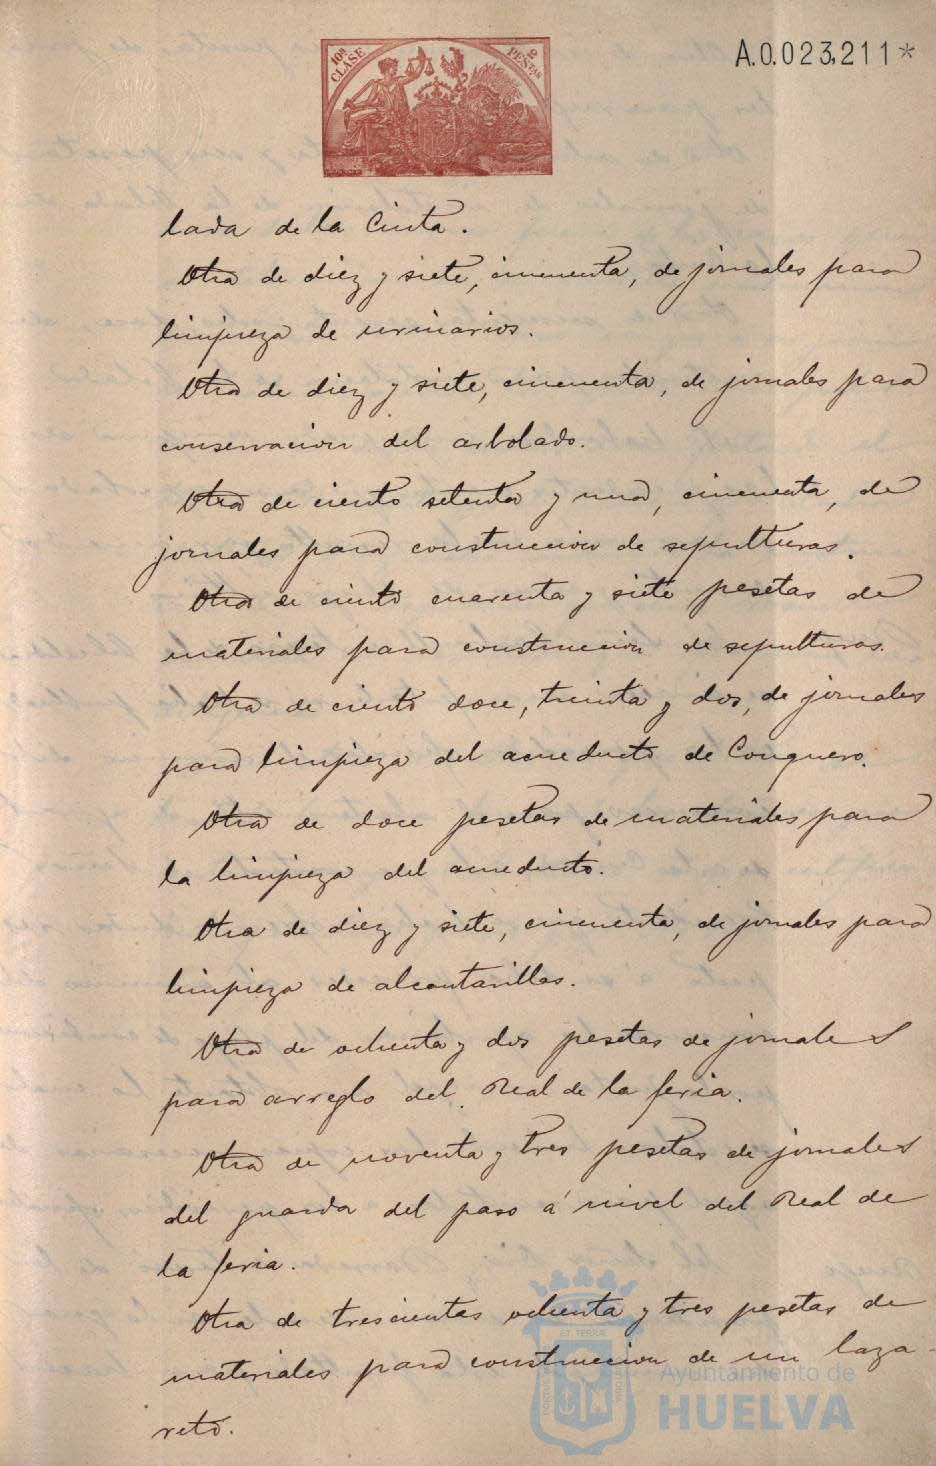 10ª CLASE
2 PESTAS
A.0.023,211*
lada de la Cinta.
Otra de diez y siete, cincuenta, de jornales para
limpieza de urinarios.
Otra de diez y siete, cincuenta, de jornales para
conservacion del arbolado.
Otra de ciento setenta y una, cincuenta, de
jornales para construccion de sepulturas.
Otra de ciento cuarenta y siete pesetas de
materiales para construccion de sepulturas.
Otra de ciento doce, treinta y dos, de jornales
para limpieza del acueducto de Conquero.
Otra de doce pesetas de materiales para
la limpieza del acueducto.
Otra de diez y siete, cincuenta, de jornales para
limpieza de alcantarillas.
Otra de ochenta y dos pesetas de jornales
para arreglo del Real de la feria.
Otra de noventa y tres pesetas de jornales
del guarda del paso á nivel del Real de
la feria.
Otra de trescientas ochenta y tres pesetas de
materiales para construccion de un laza-
reto.
Ayuntamiento de
HUELVA